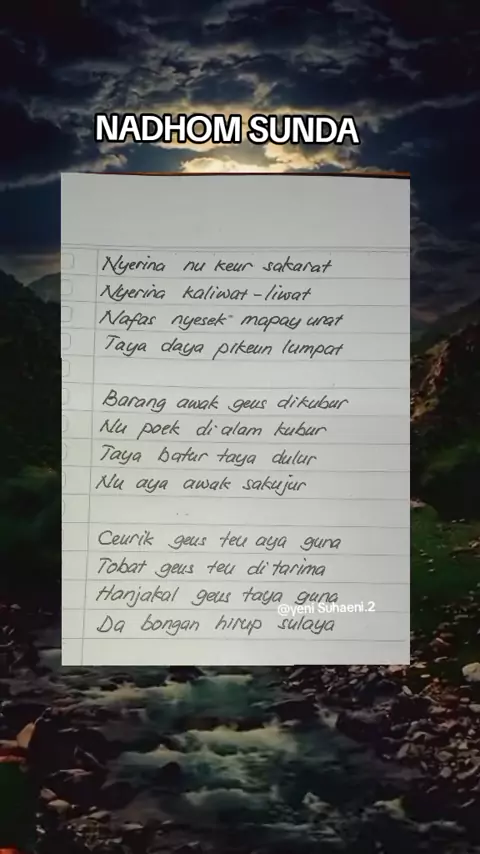 NADHOM SUNDA
Nyerina nu keur sakarat
Nyerina kaliwat-liwat
Nafas nyesek mapay urat
Taya daya pikeun lumpat
Barang awak geus dikubur
Nu poek di alam kubur
Taya batur taya dulur
Nu aya awak sakujur
Ceurik geus teu aya guna
Tobat geus teu di tarima
Hanjakal geus taya guna
@yeni Suhaeni.2
Da bongan hirup sulaya